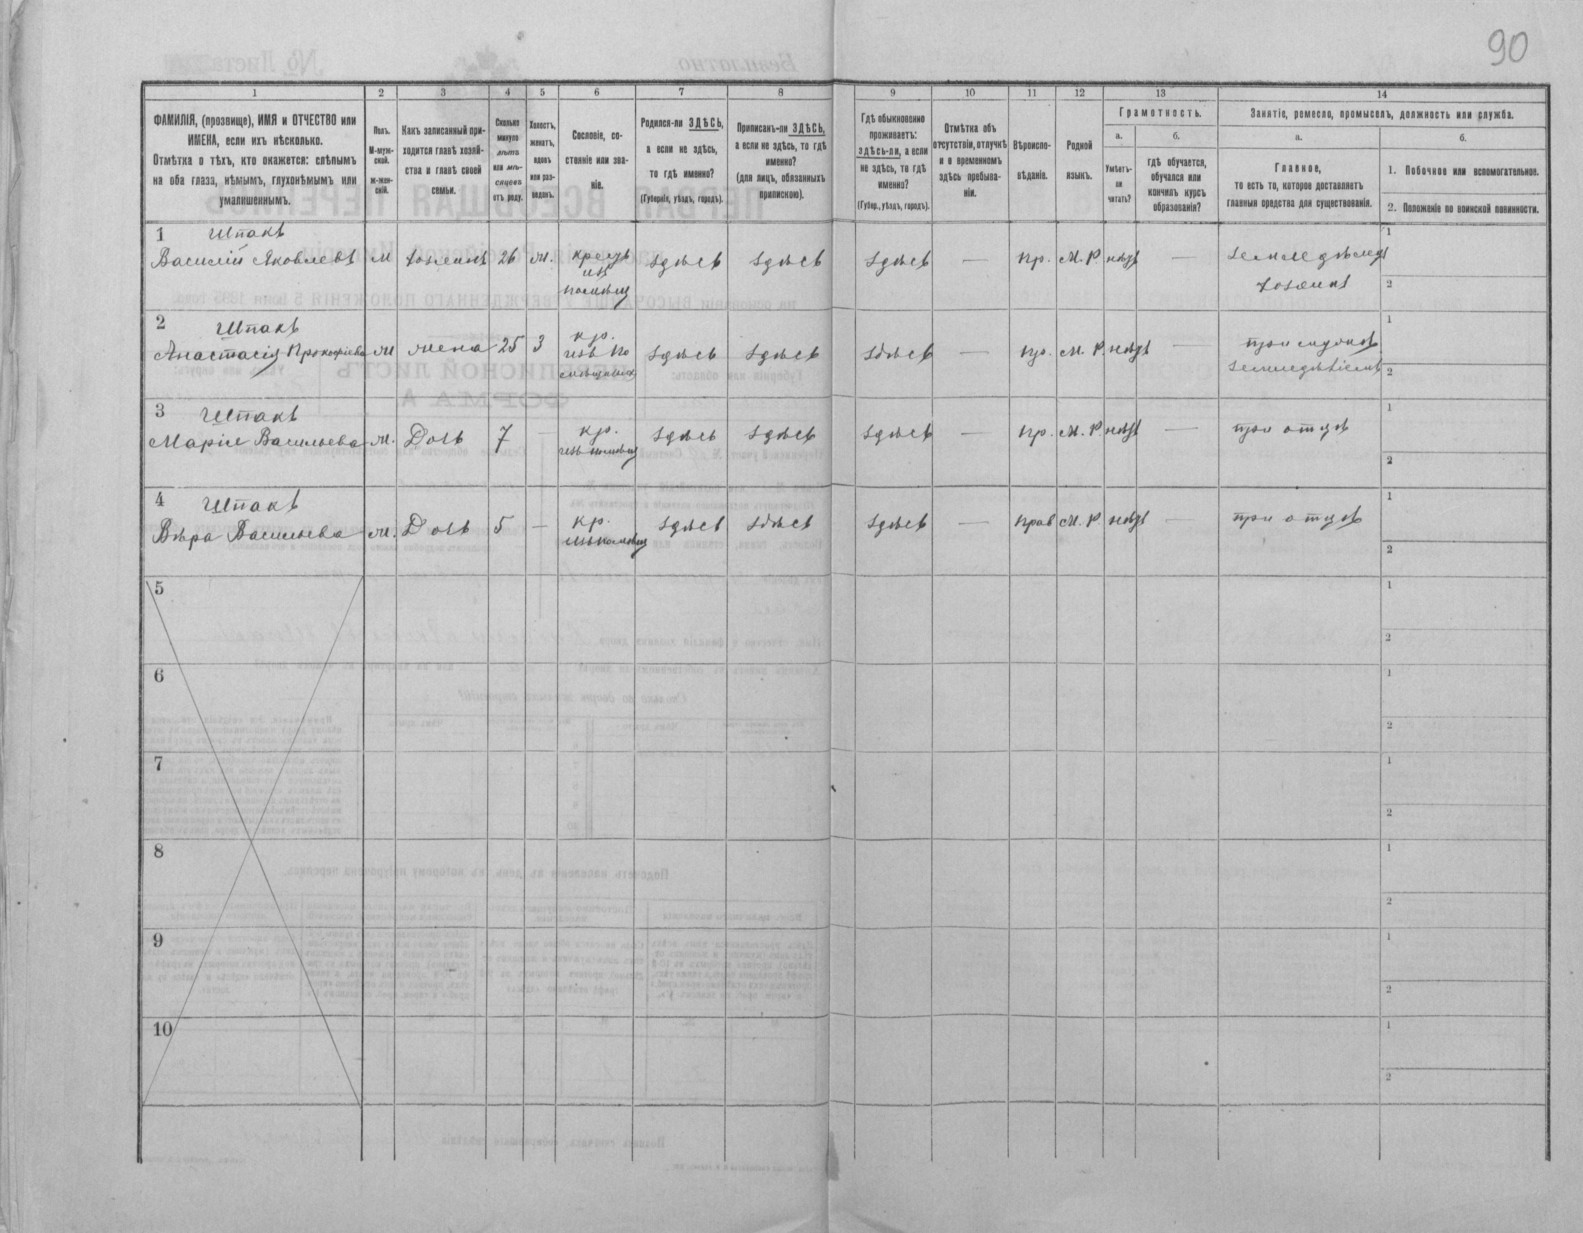 90
1
2
3
4
5
6
7
8
9
10
11
12
13
14
ФАМИЛІЯ, (прозвище), ИМЯ и ОТЧЕСТВО или
ИМЕНА, если ихъ нѣсколько.
Отмѣтка о тѣхъ, кто окажется: слѣпымъ
на оба глаза, нѣмымъ, глухонѣмымъ или
умалишеннымъ.
Полъ.
М-муж-
ской.
ж-жен-
скій.
Какъ записанный при-
ходится главѣ хозяй-
ства и главѣ своей
семьи.
Сколько
минуло
лѣтъ
или мѣ-
сяцевъ
отъ роду.
Холостъ,
женатъ,
вдовъ
или раз-
веденъ.
Сословіе, со-
стояніе или зва-
ніе.
Родился-ли ЗДѢСЬ,
а если не здѣсь,
то гдѣ именно?
(Губернія, уѣздъ, городъ).
Приписанъ-ли ЗДѢСЬ,
а если не здѣсь, то гдѣ
именно?
(для лицъ, обязанныхъ
припискою).
Гдѣ обыкновенно
проживаетъ:
здѣсь-ли, а если
не здѣсь, то гдѣ
именно?
(Губер., уѣздъ, городъ).
Отмѣтка объ
отсутствіи, отлучкѣ
и о временномъ
здѣсь пребыва-
ніи.
Вѣроиспо-
вѣданіе.
Родной
языкъ.
Грамотность.
а.
Умѣетъ-
ли
читать?
б.
гдѣ обучается,
обучался или
кончилъ курсъ
образованія?
Занятіе, ремесло, промыселъ, должность или служба.
а.
Главное,
то есть то, которое доставляетъ
главныя средства для существованія.
б.
1. Побочное или вспомогательное.
2. Положеніе по воинской повинности.
1
Шпакъ
Василій Яковлевъ
М
хозяинъ
26
ж.
крест
изъ
помѣщ
здѣсь
здѣсь
здѣсь
—
пр.
М. Р
нѣтъ
—
земледѣлецъ
хозяинъ
1
2
2
Шпакъ
Анастасія Прокофіева
ж
жена
25
З
кр.
изъ по
мѣщичьих
здѣсь
здѣсь
здѣсь
—
пр.
М. Р
нѣтъ
—
при мужѣ
земледѣліемъ
1
2
3
Шпакъ
Марія Васильева
ж.
Дочь
7
—
кр.
изъ помѣщ
здѣсь
здѣсь
здѣсь
—
пр.
М. Р
нѣтъ
—
при отцѣ
1
2
4
Шпакъ
Вѣра Васильева
ж.
Дочь
5
—
кр.
изъ помѣщ
здѣсь
здѣсь
здѣсь
—
прав
М. Р
нѣтъ
—
при отцѣ
1
2
5
1
2
6
1
2
7
1
2
8
1
2
9
1
2
10
1
2